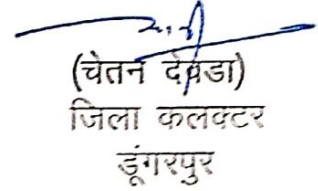 (चेतन देवडा)
जिला कलक्टर
डूंगरपुर